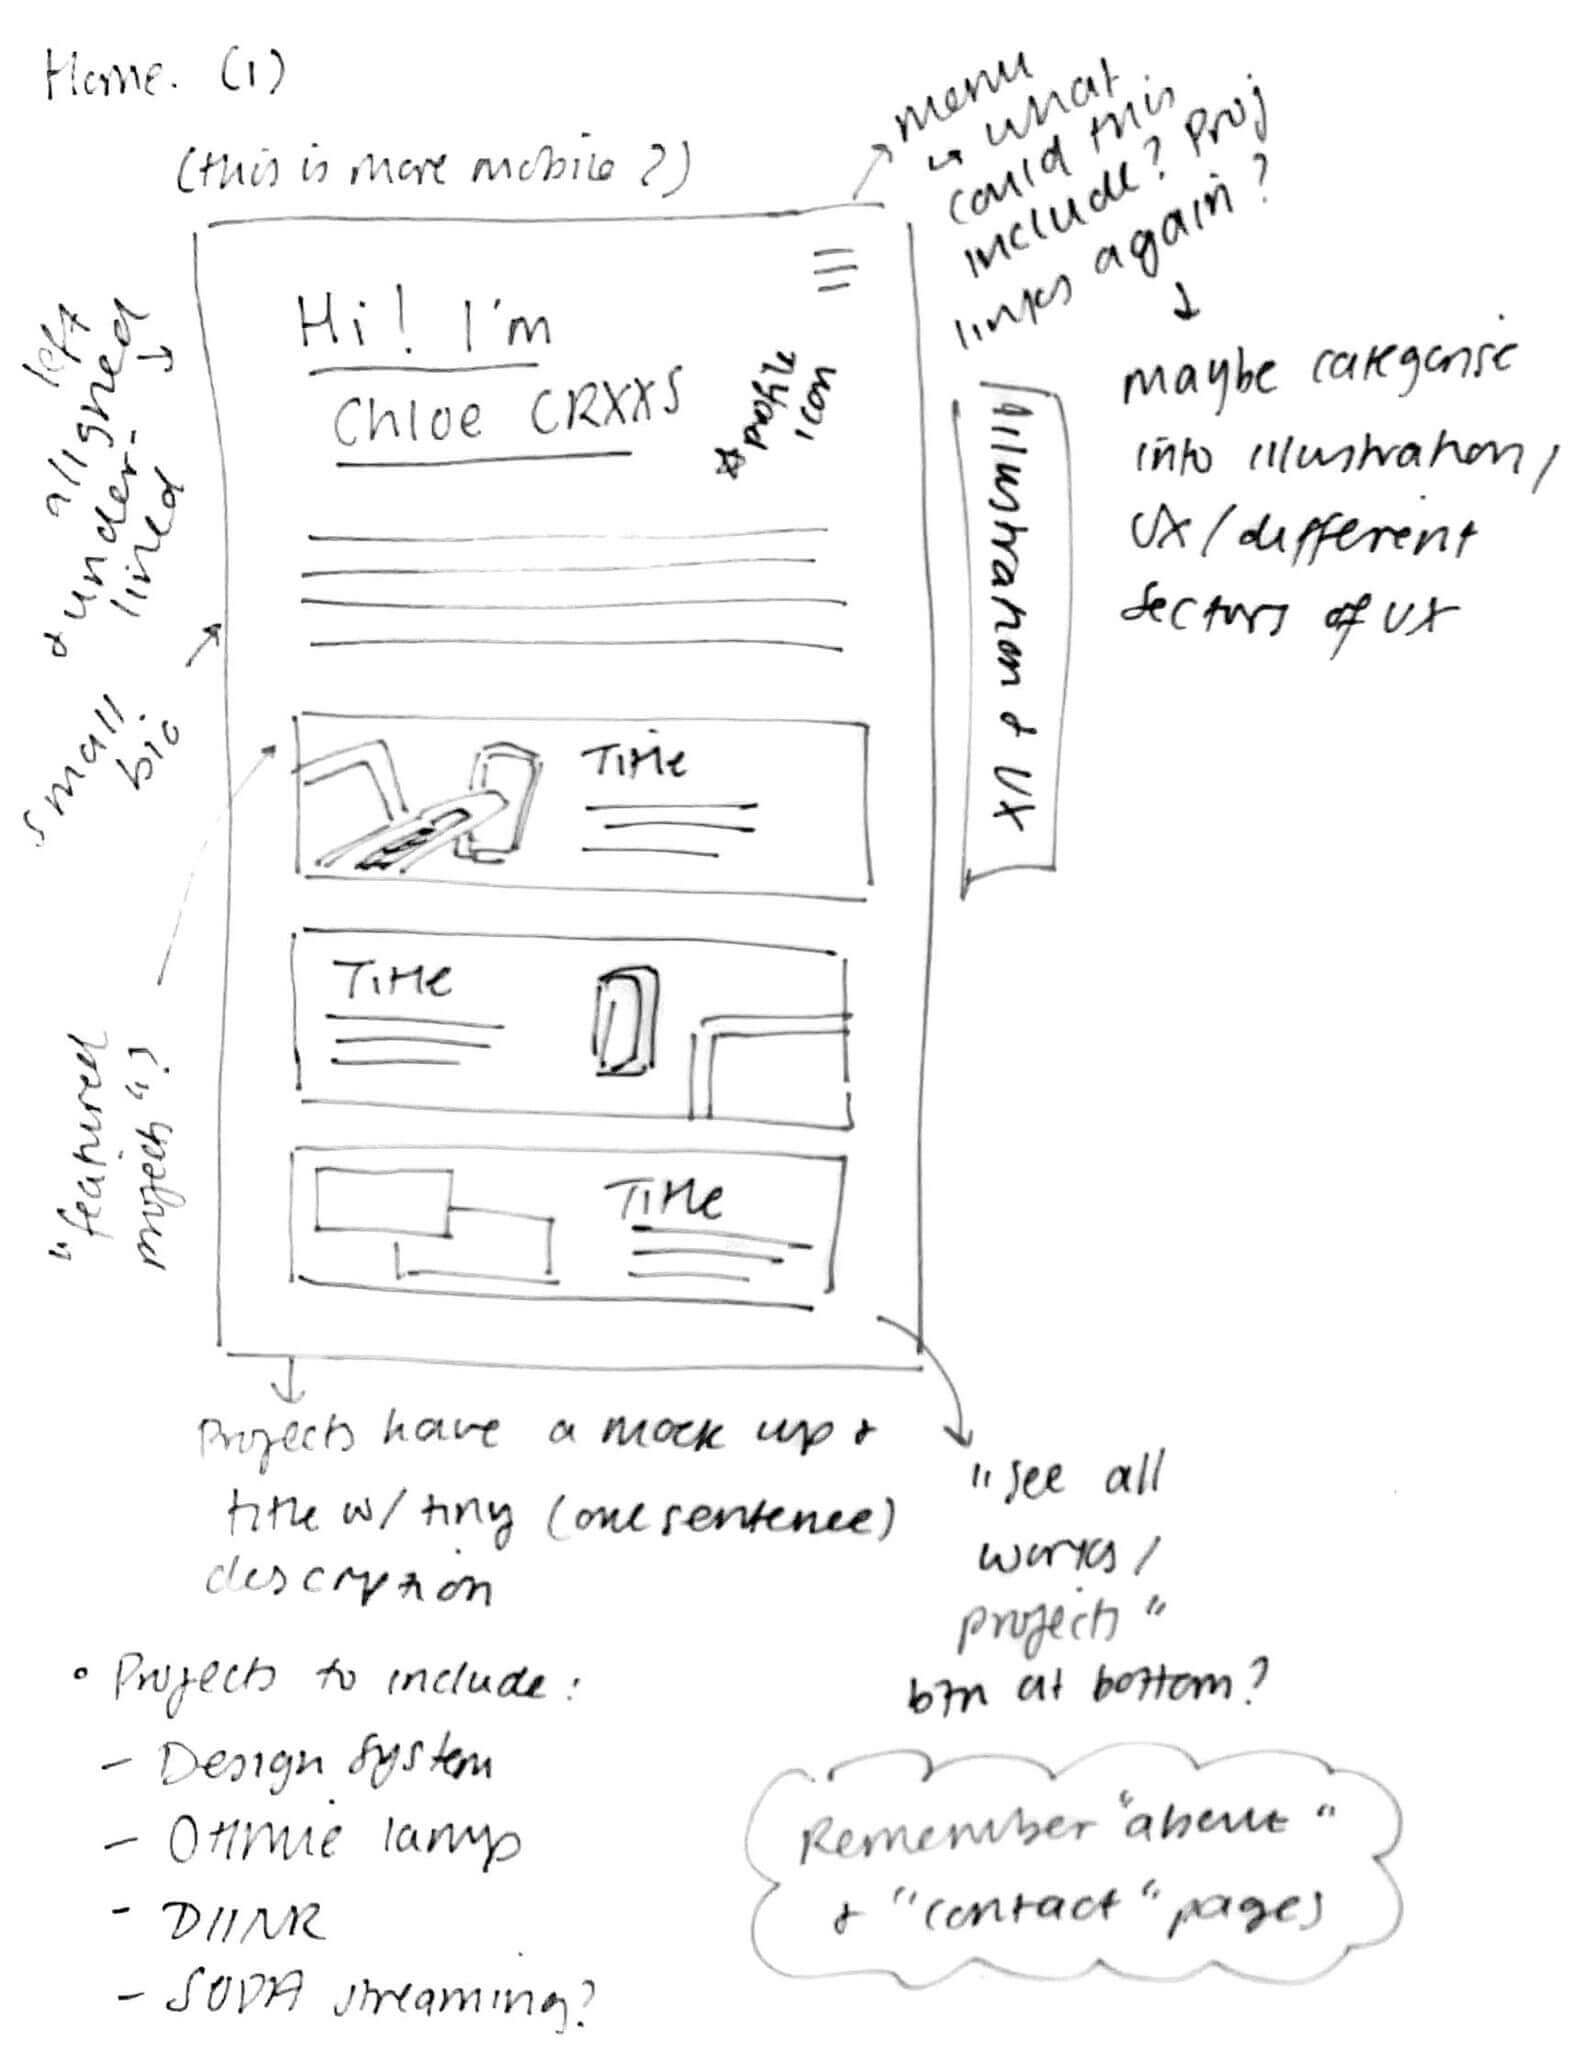 Home. (1)
(this is more mobile?)
menu
↳ what
could this
include? Proj
links again?
↓
maybe categorise
into illustration/
UX/different
sectors of UX
left
alligned
& under-
lined
Hi! I'm
Chloe CRXXS
* profile
icon
Illustration & UX
small
bio
"featured
projects"?
Title
Title
Title
Projects have a mock up +
title w/ tiny (one sentence)
description
"see all
works/
projects"
btn at bottom?
• Projects to include:
- Design System
- Ottmie lamp
- DIINR
- SODA streaming?
Remember "about"
+ "contact" pages